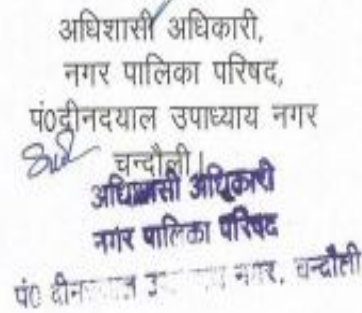 अधिशासी अधिकारी,
नगर पालिका परिषद,
पं0दीनदयाल उपाध्याय नगर
चन्दौली।
अधिशासी अधिकारी
नगर पालिका परिषद
पं0 नगर, चन्दौली